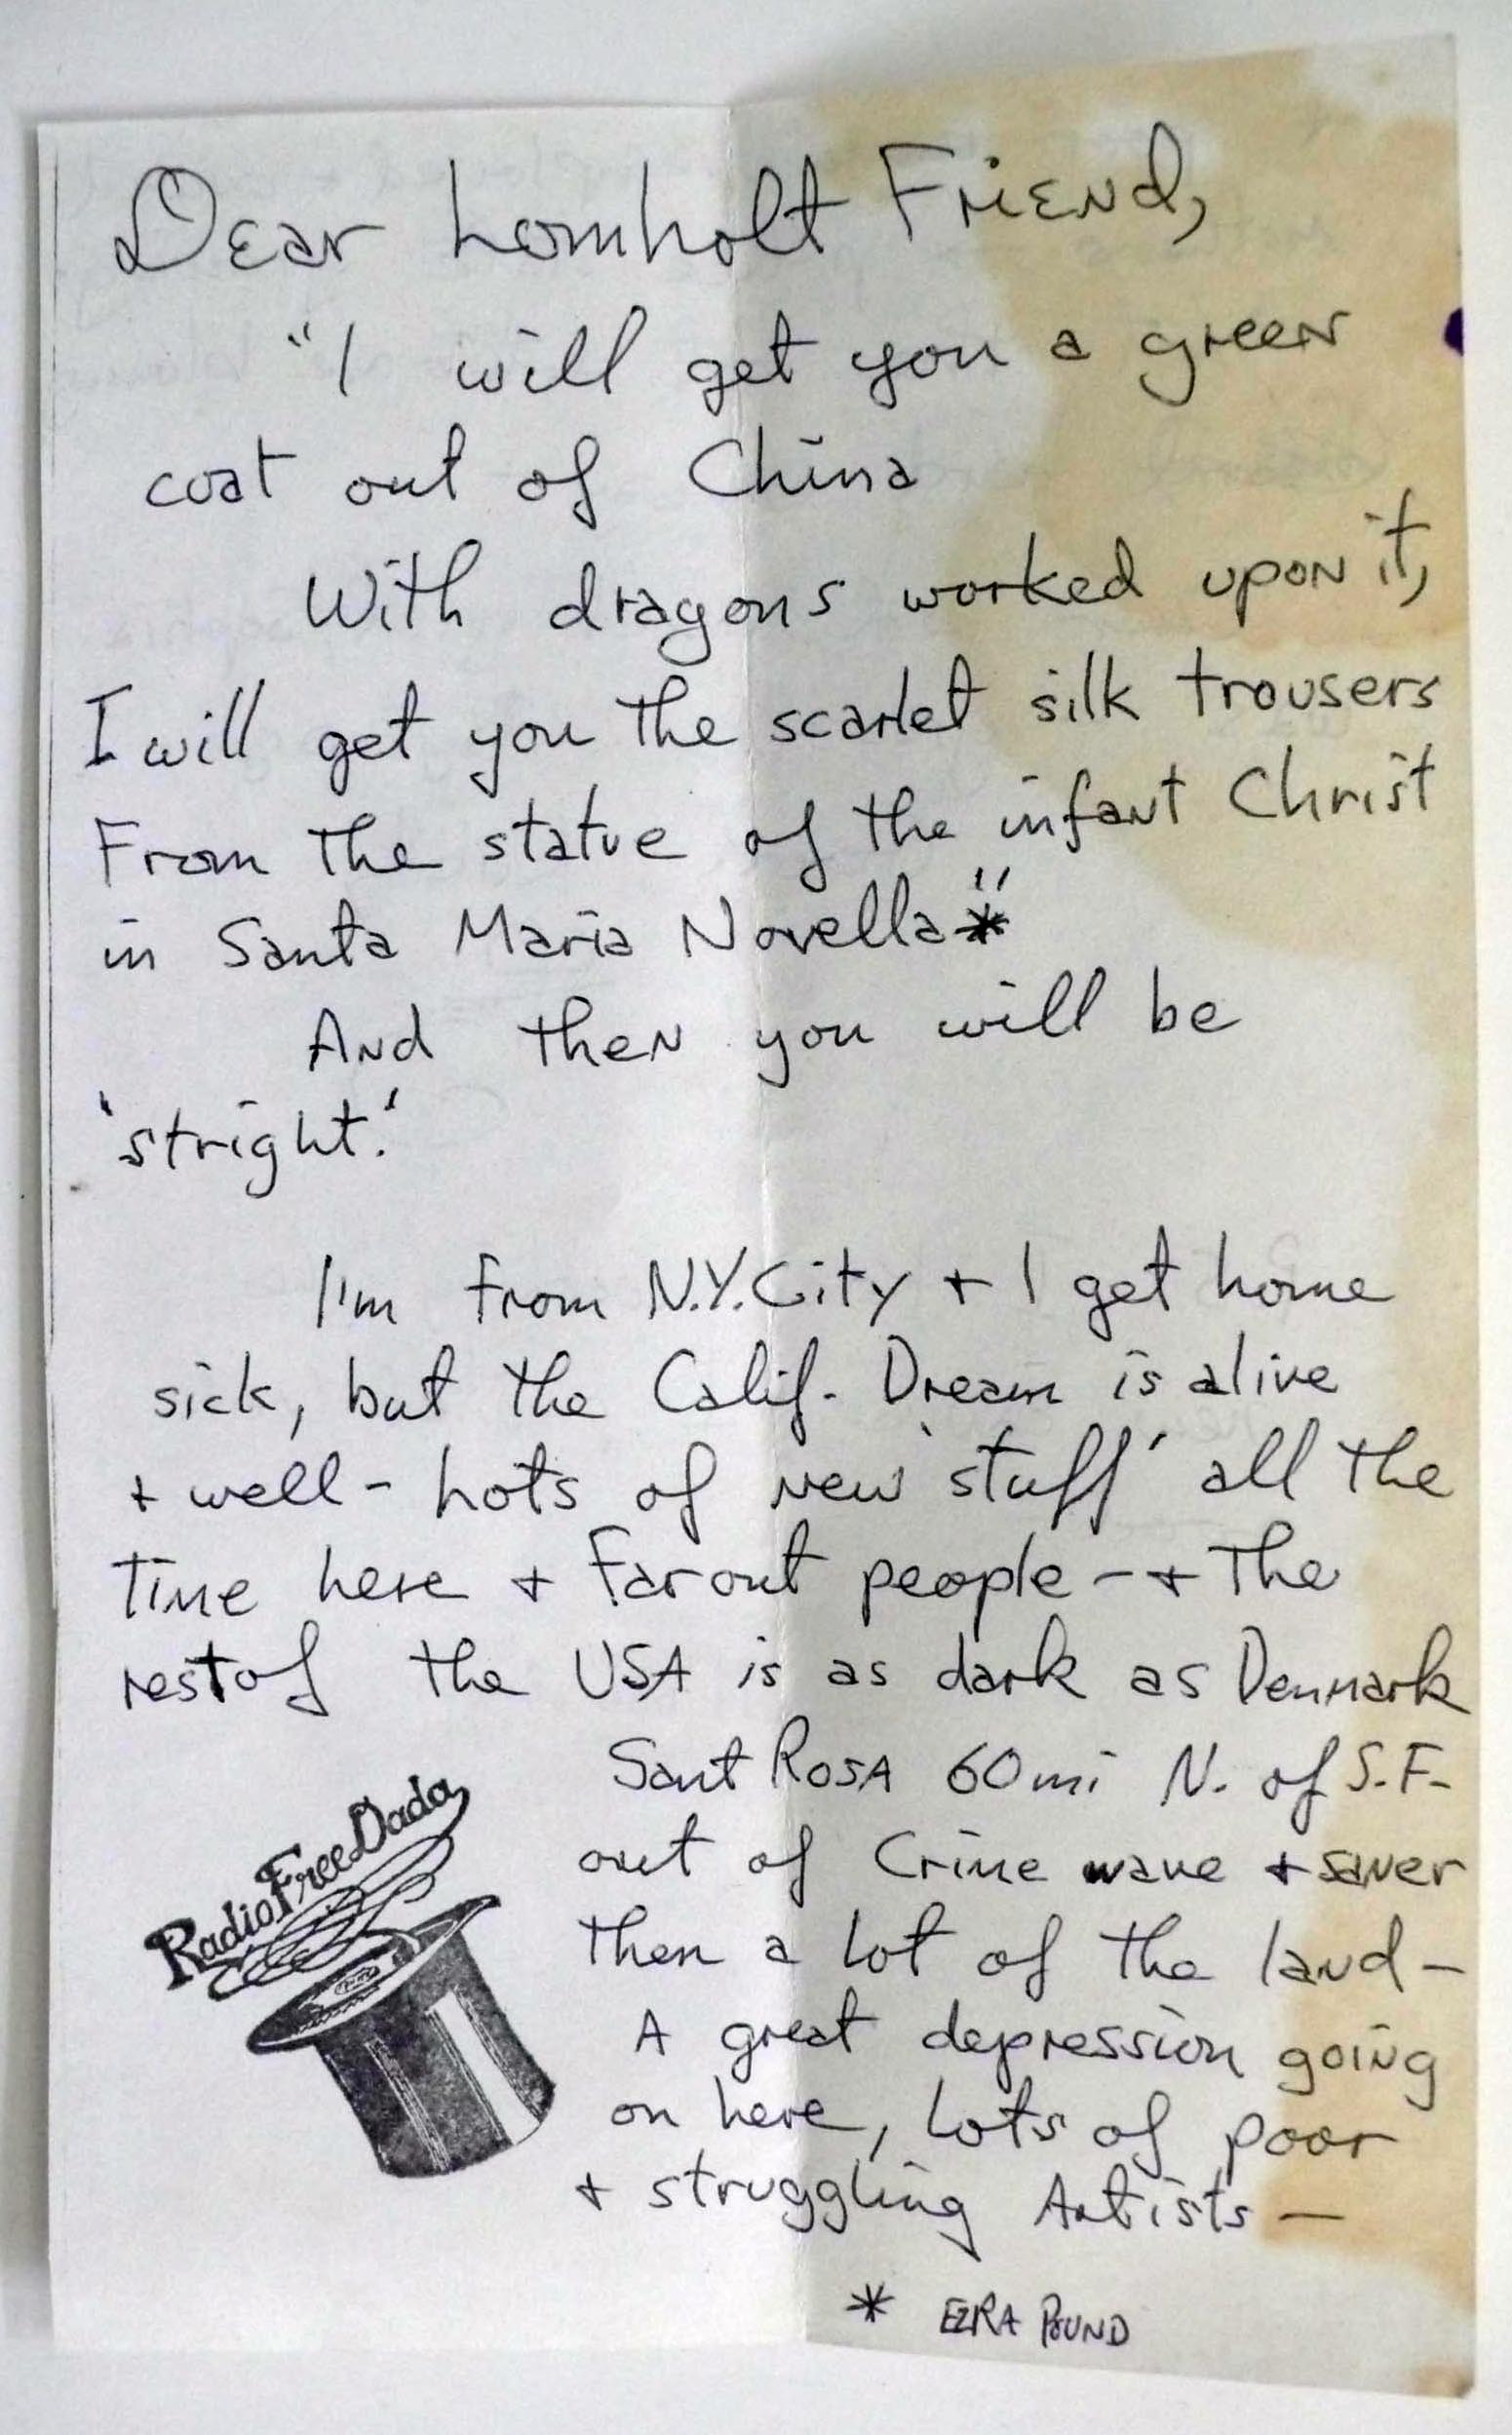 Dear Lomholt Friend,
"I will get you a green
coat out of China
With dragons worked upon it,
I will get you the scarlet silk trousers
From the statue of the infant Christ
in Santa Maria Novella"*
And then you will be
'stright.'
I'm from N.Y. City + I get home
sick, but the Calif. Dream is alive
+ well - Lots of new 'stuff' all the
Time here + Far out people - + The
rest of the USA is as dark as Denmark
Sant Rosa 60 mi N. of S.F.
out of Crime wave + saner
then a Lot of the land -
A great depression going
on here, Lots of poor
+ struggling Artists -
Radio Free Dada
* EZRA POUND